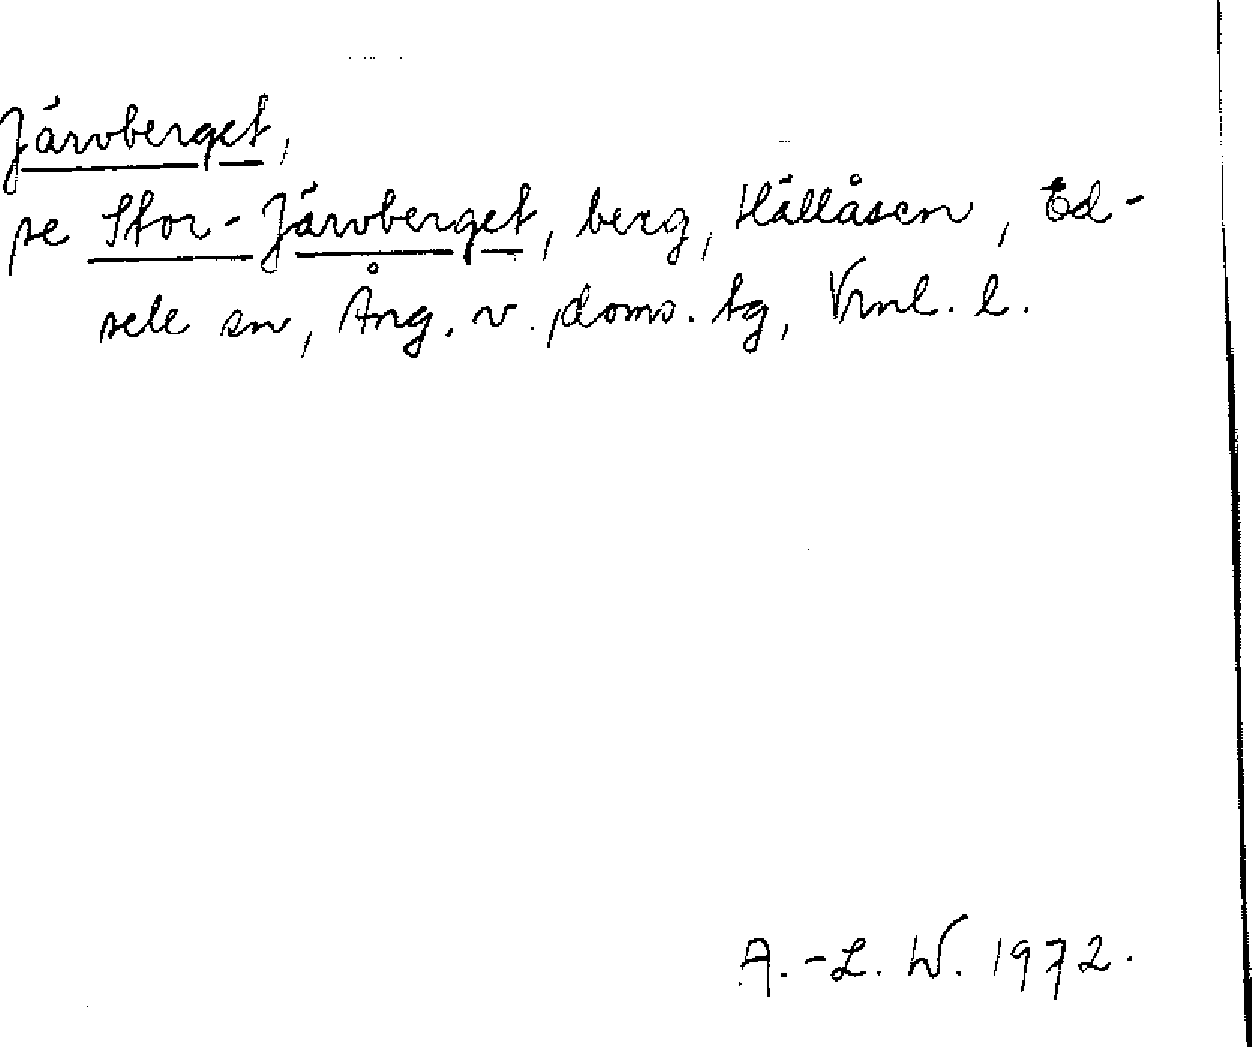 Järvberget,
se Stor-Järvberget, berg, Hällåsen, Ed-
sele sn, Ång. v. doms. tg, Vrnl. l.
A.-L. W. 1972.